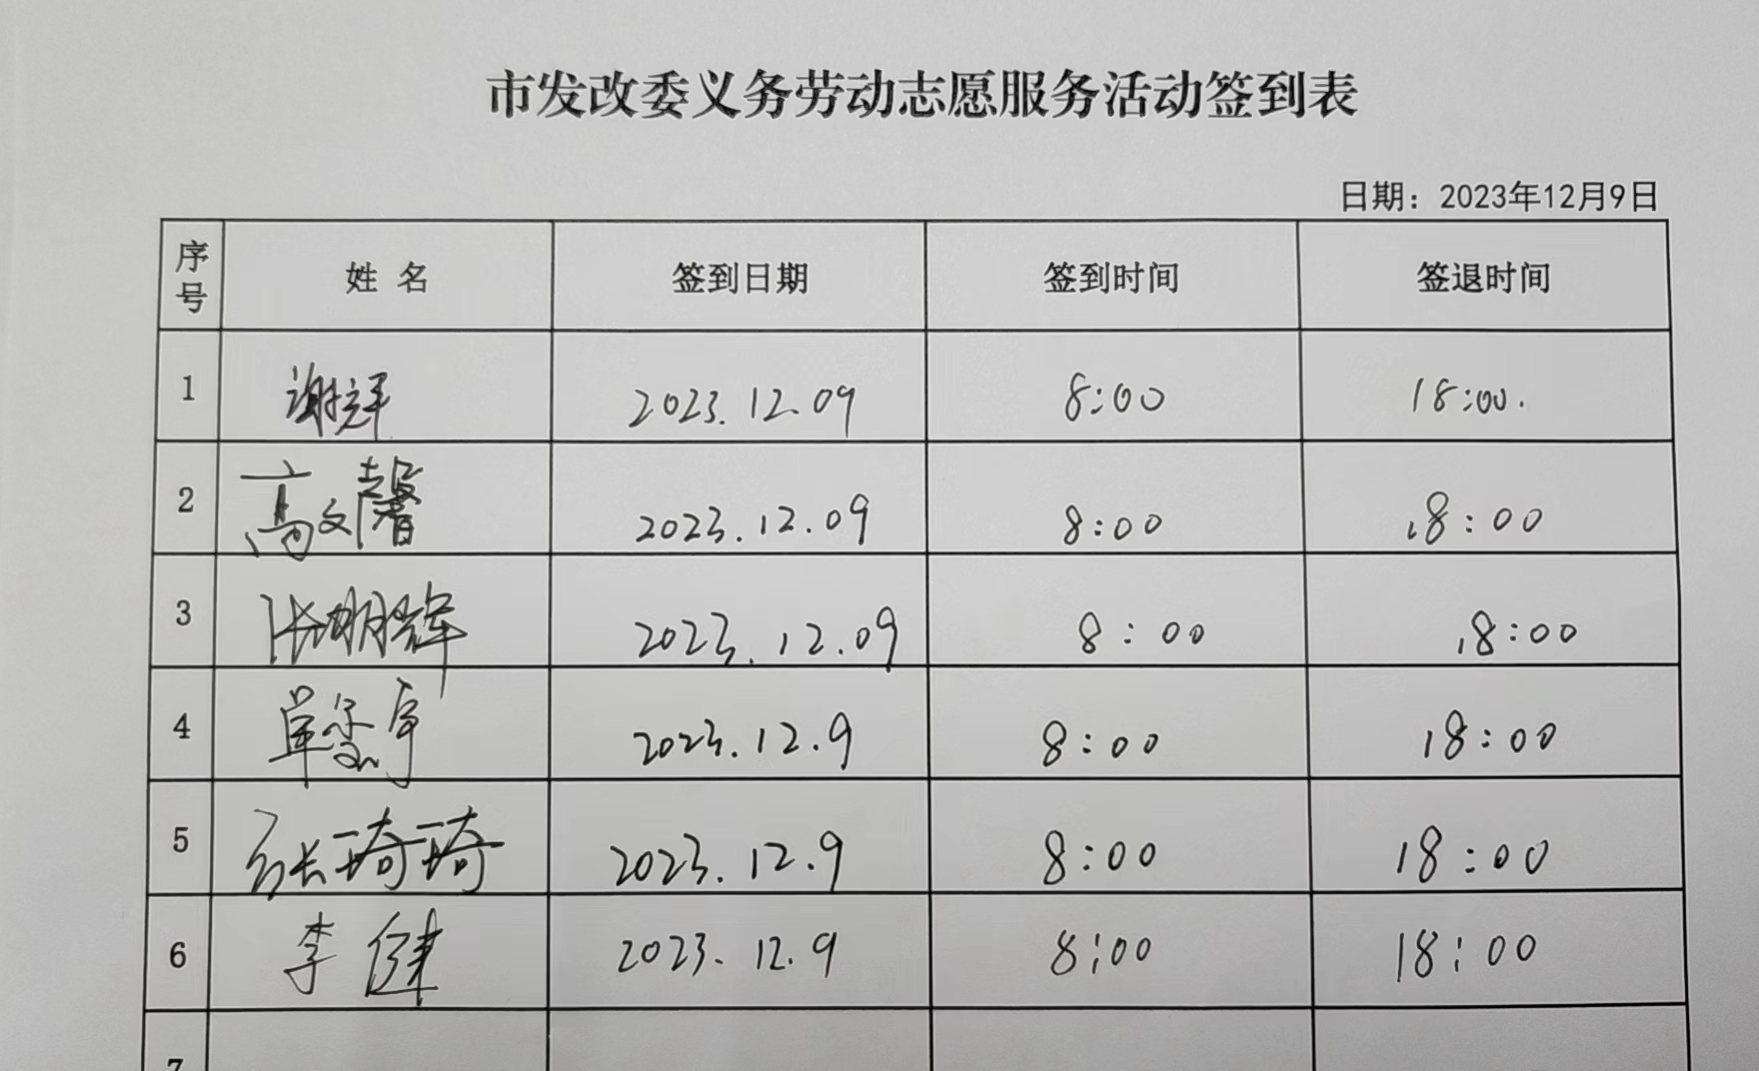 市发改委义务劳动志愿服务活动签到表
日期：2023年12月9日
序号 姓 名 签到日期 签到时间 签退时间
1 谢辉 2023.12.09 8:00 18:00.
2 高文馨 2023.12.09 8:00 18:00
3 张明辉 2023.12.09 8:00 18:00
4 单 2023.12.9 8:00 18:00
5 张琦琦 2023.12.9 8:00 18:00
6 李健 2023.12.9 8:00 18:00
7